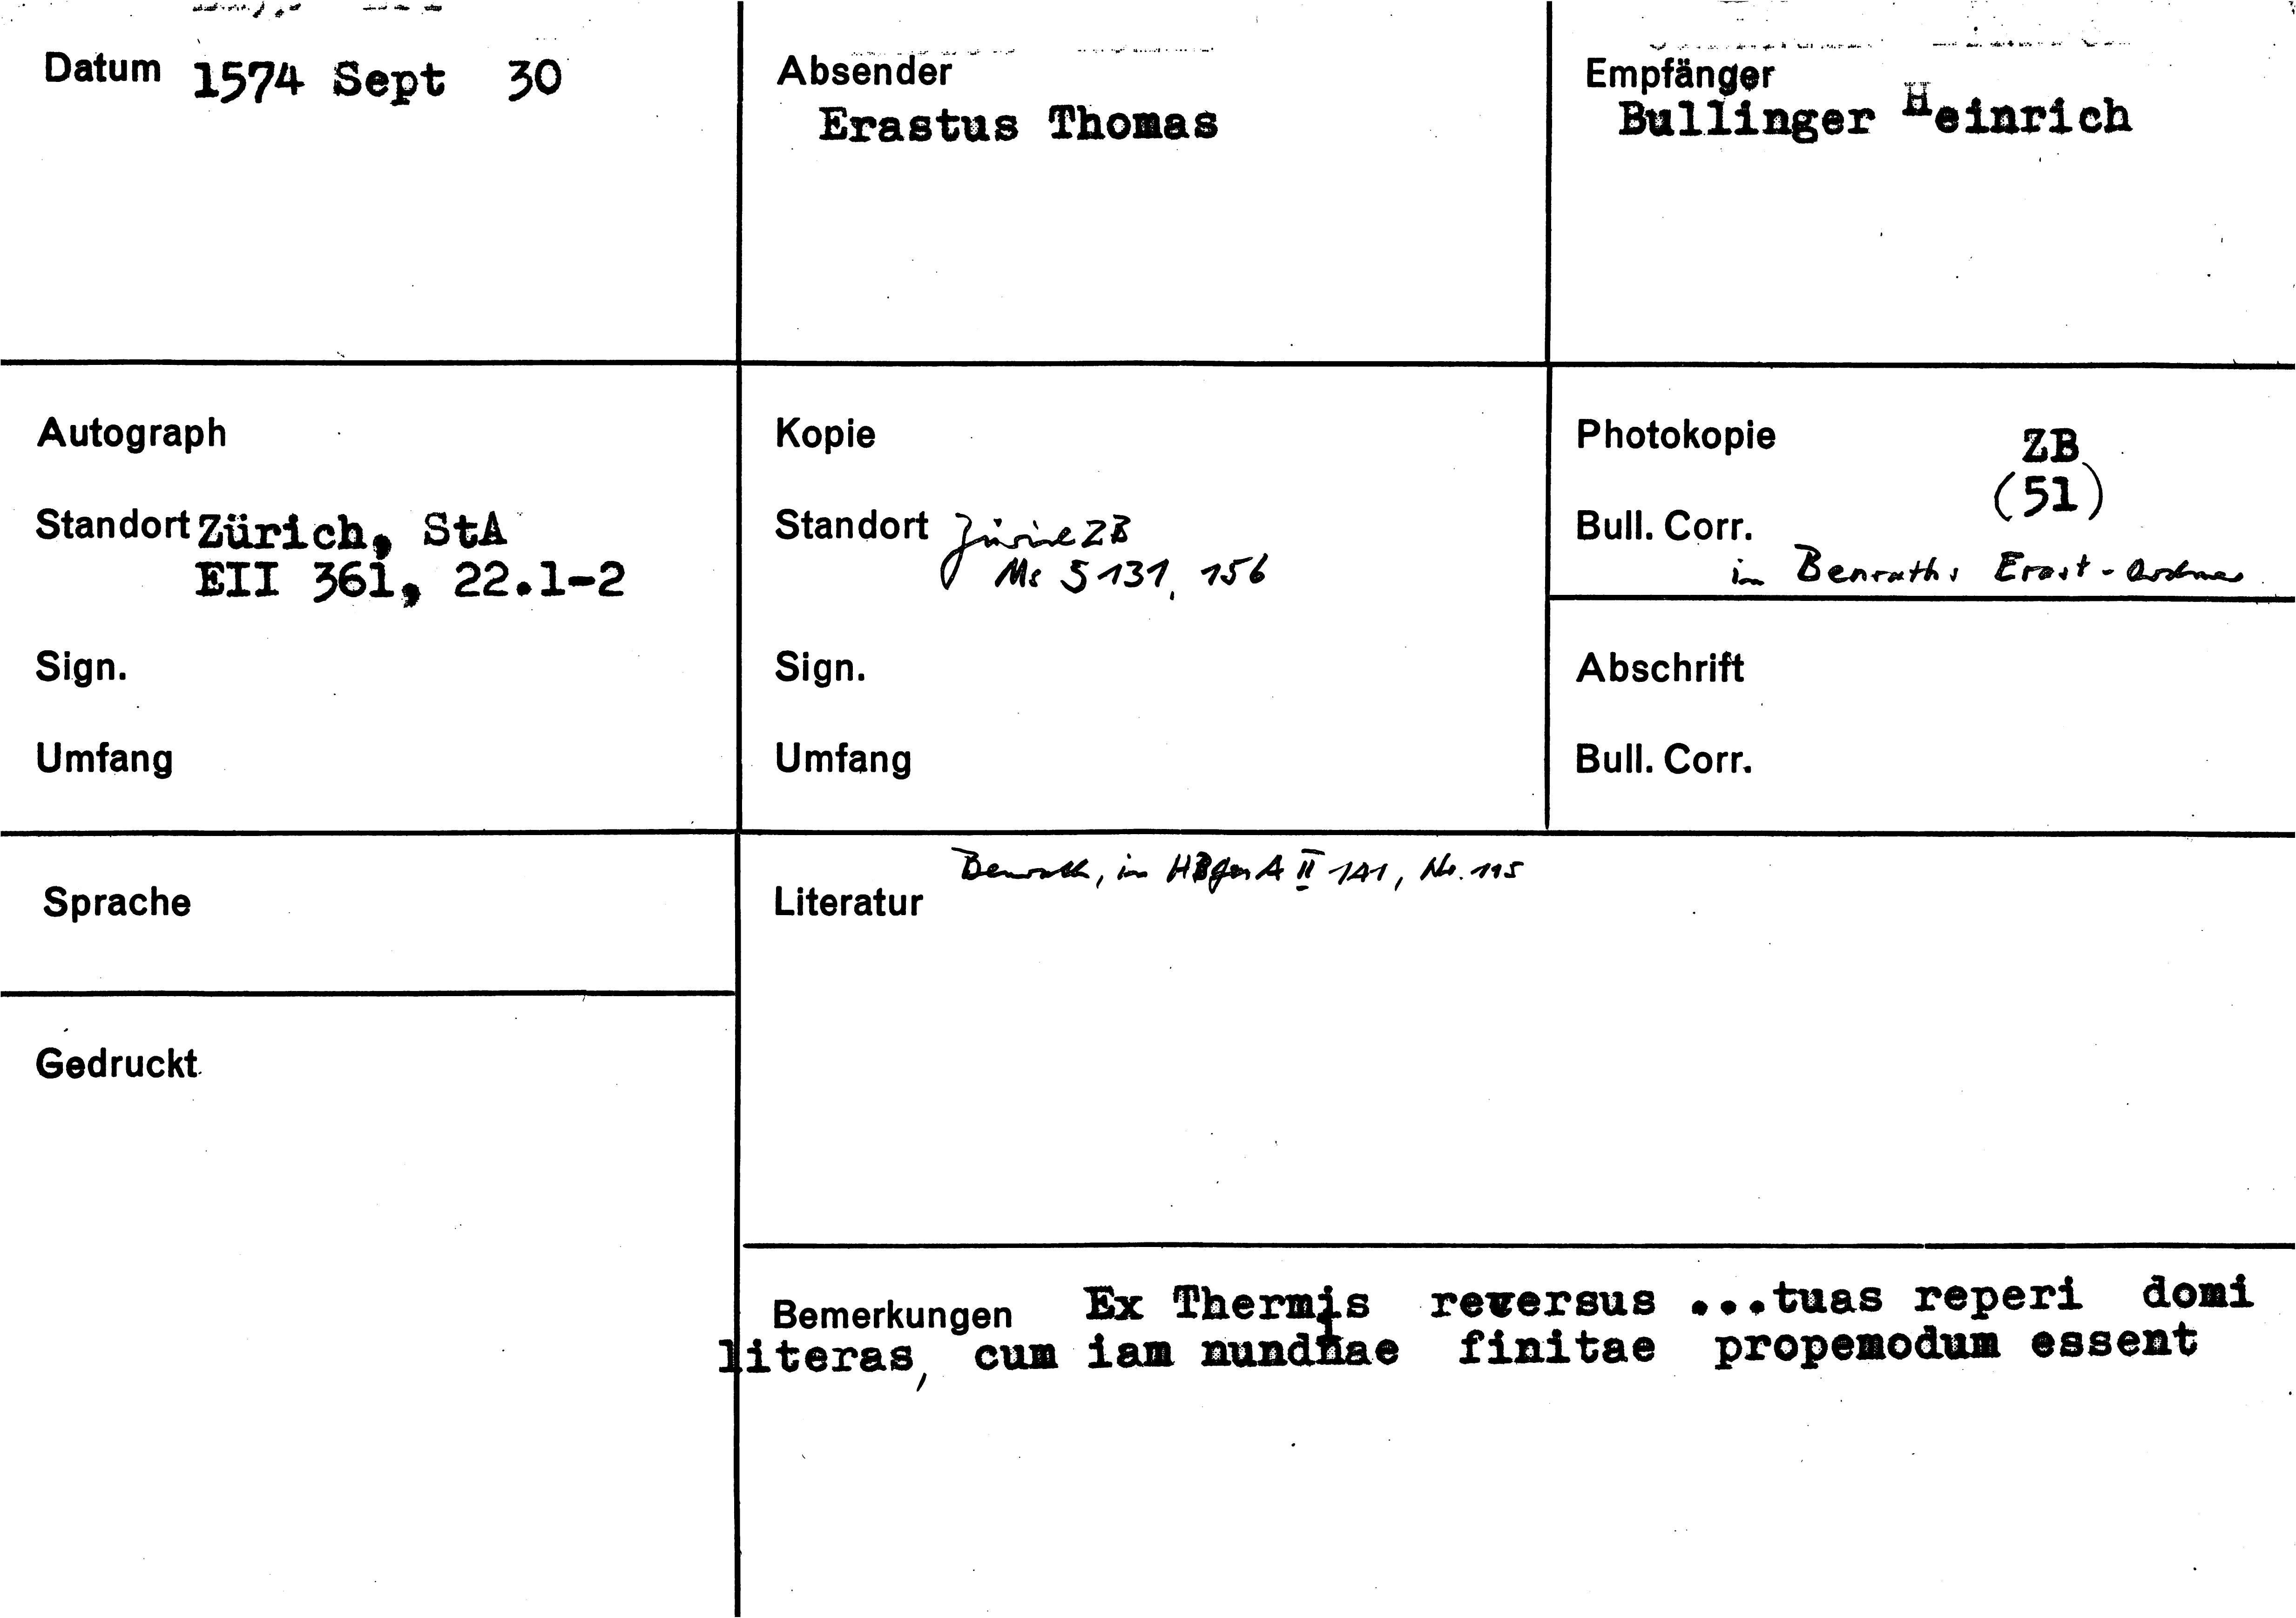 Datum 1574 Sept 30
Absender
Erastus Thomas
Empfänger
Bullinger Heinrich
Autograph
Standort Zürich, StA
EII 361, 22.1-2
Sign.
Umfang
Kopie
Standort Zürich ZB
Ms S 131, 156
Sign.
Umfang
Photokopie ZB
(51)
Bull. Corr.
im Benraths Erast-Ordner
Abschrift
Bull. Corr.
Sprache
Gedruckt
Benrath, in HBGesA II 141, Nr. 115
Literatur
Bemerkungen Ex Thermis reversus ...tuas reperi domi
literas, cum iam nundinae finitae propemodum essent